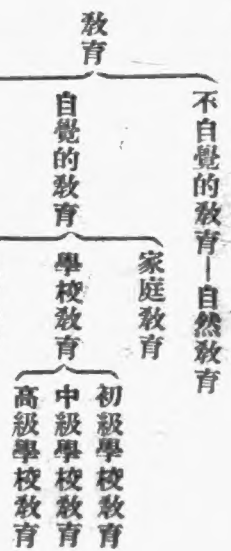 教育
不自覺的教育—自然教育
自覺的教育
家庭教育
學校教育
初級學校教育
中級學校教育
高級學校教育